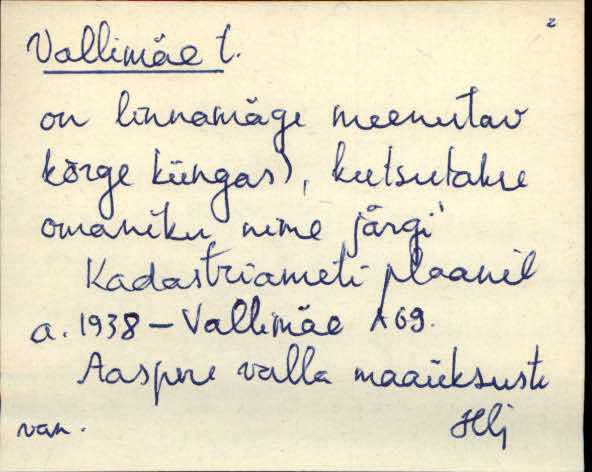 2
Vallimäe t.
on linnamäge meenutav
kõrge küngas), kutsutakse
omaniku nime järgi
Kadastriameti plaanil
a. 1938 – Vallimäe A 69.
Aaspere valla maaüksuste
van.